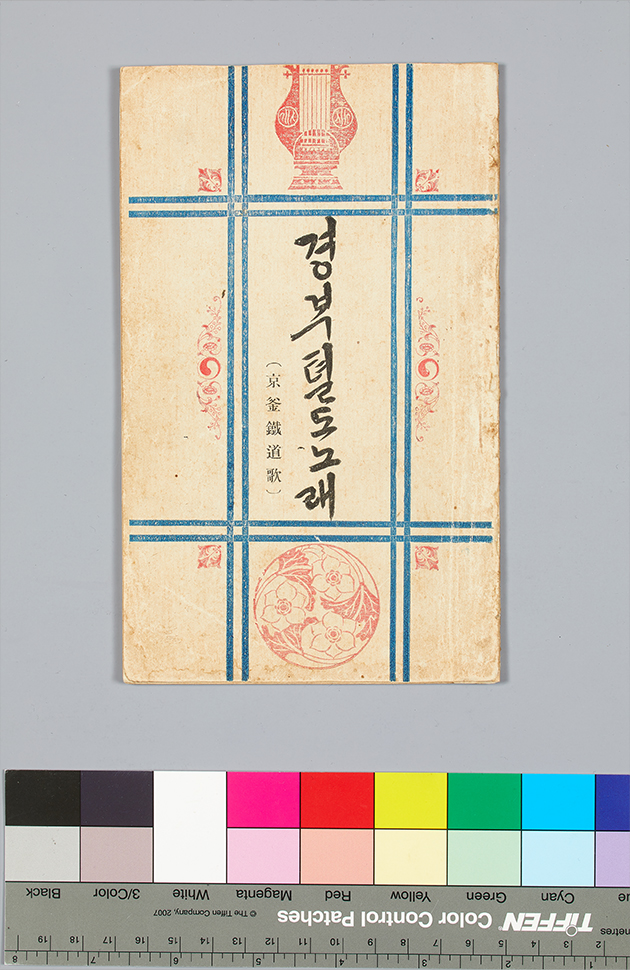 경부텰도노래
（京釜鐵道歌）
1 2 3 4 5 6 7 8
metres
2 3 4 5 6 7 8 9 10 11 12 13 14 15 16 17 18 19
TIFFEN® Color Control Patches © The Tiffen Company, 2007
ue Cyan Green Yellow Red Magenta White 3/Color Black